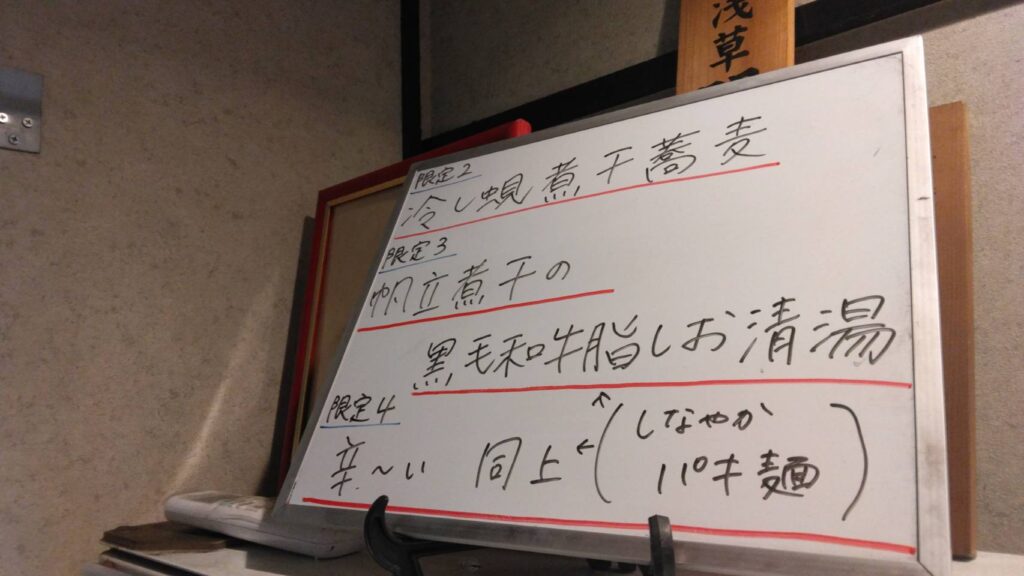 浅草
限定2
冷し蜆煮干蕎麦
限定3
帆立煮干の
黒毛和牛脂しお清湯
限定4
辛〜い 同上←(しなやか
パキ麺)